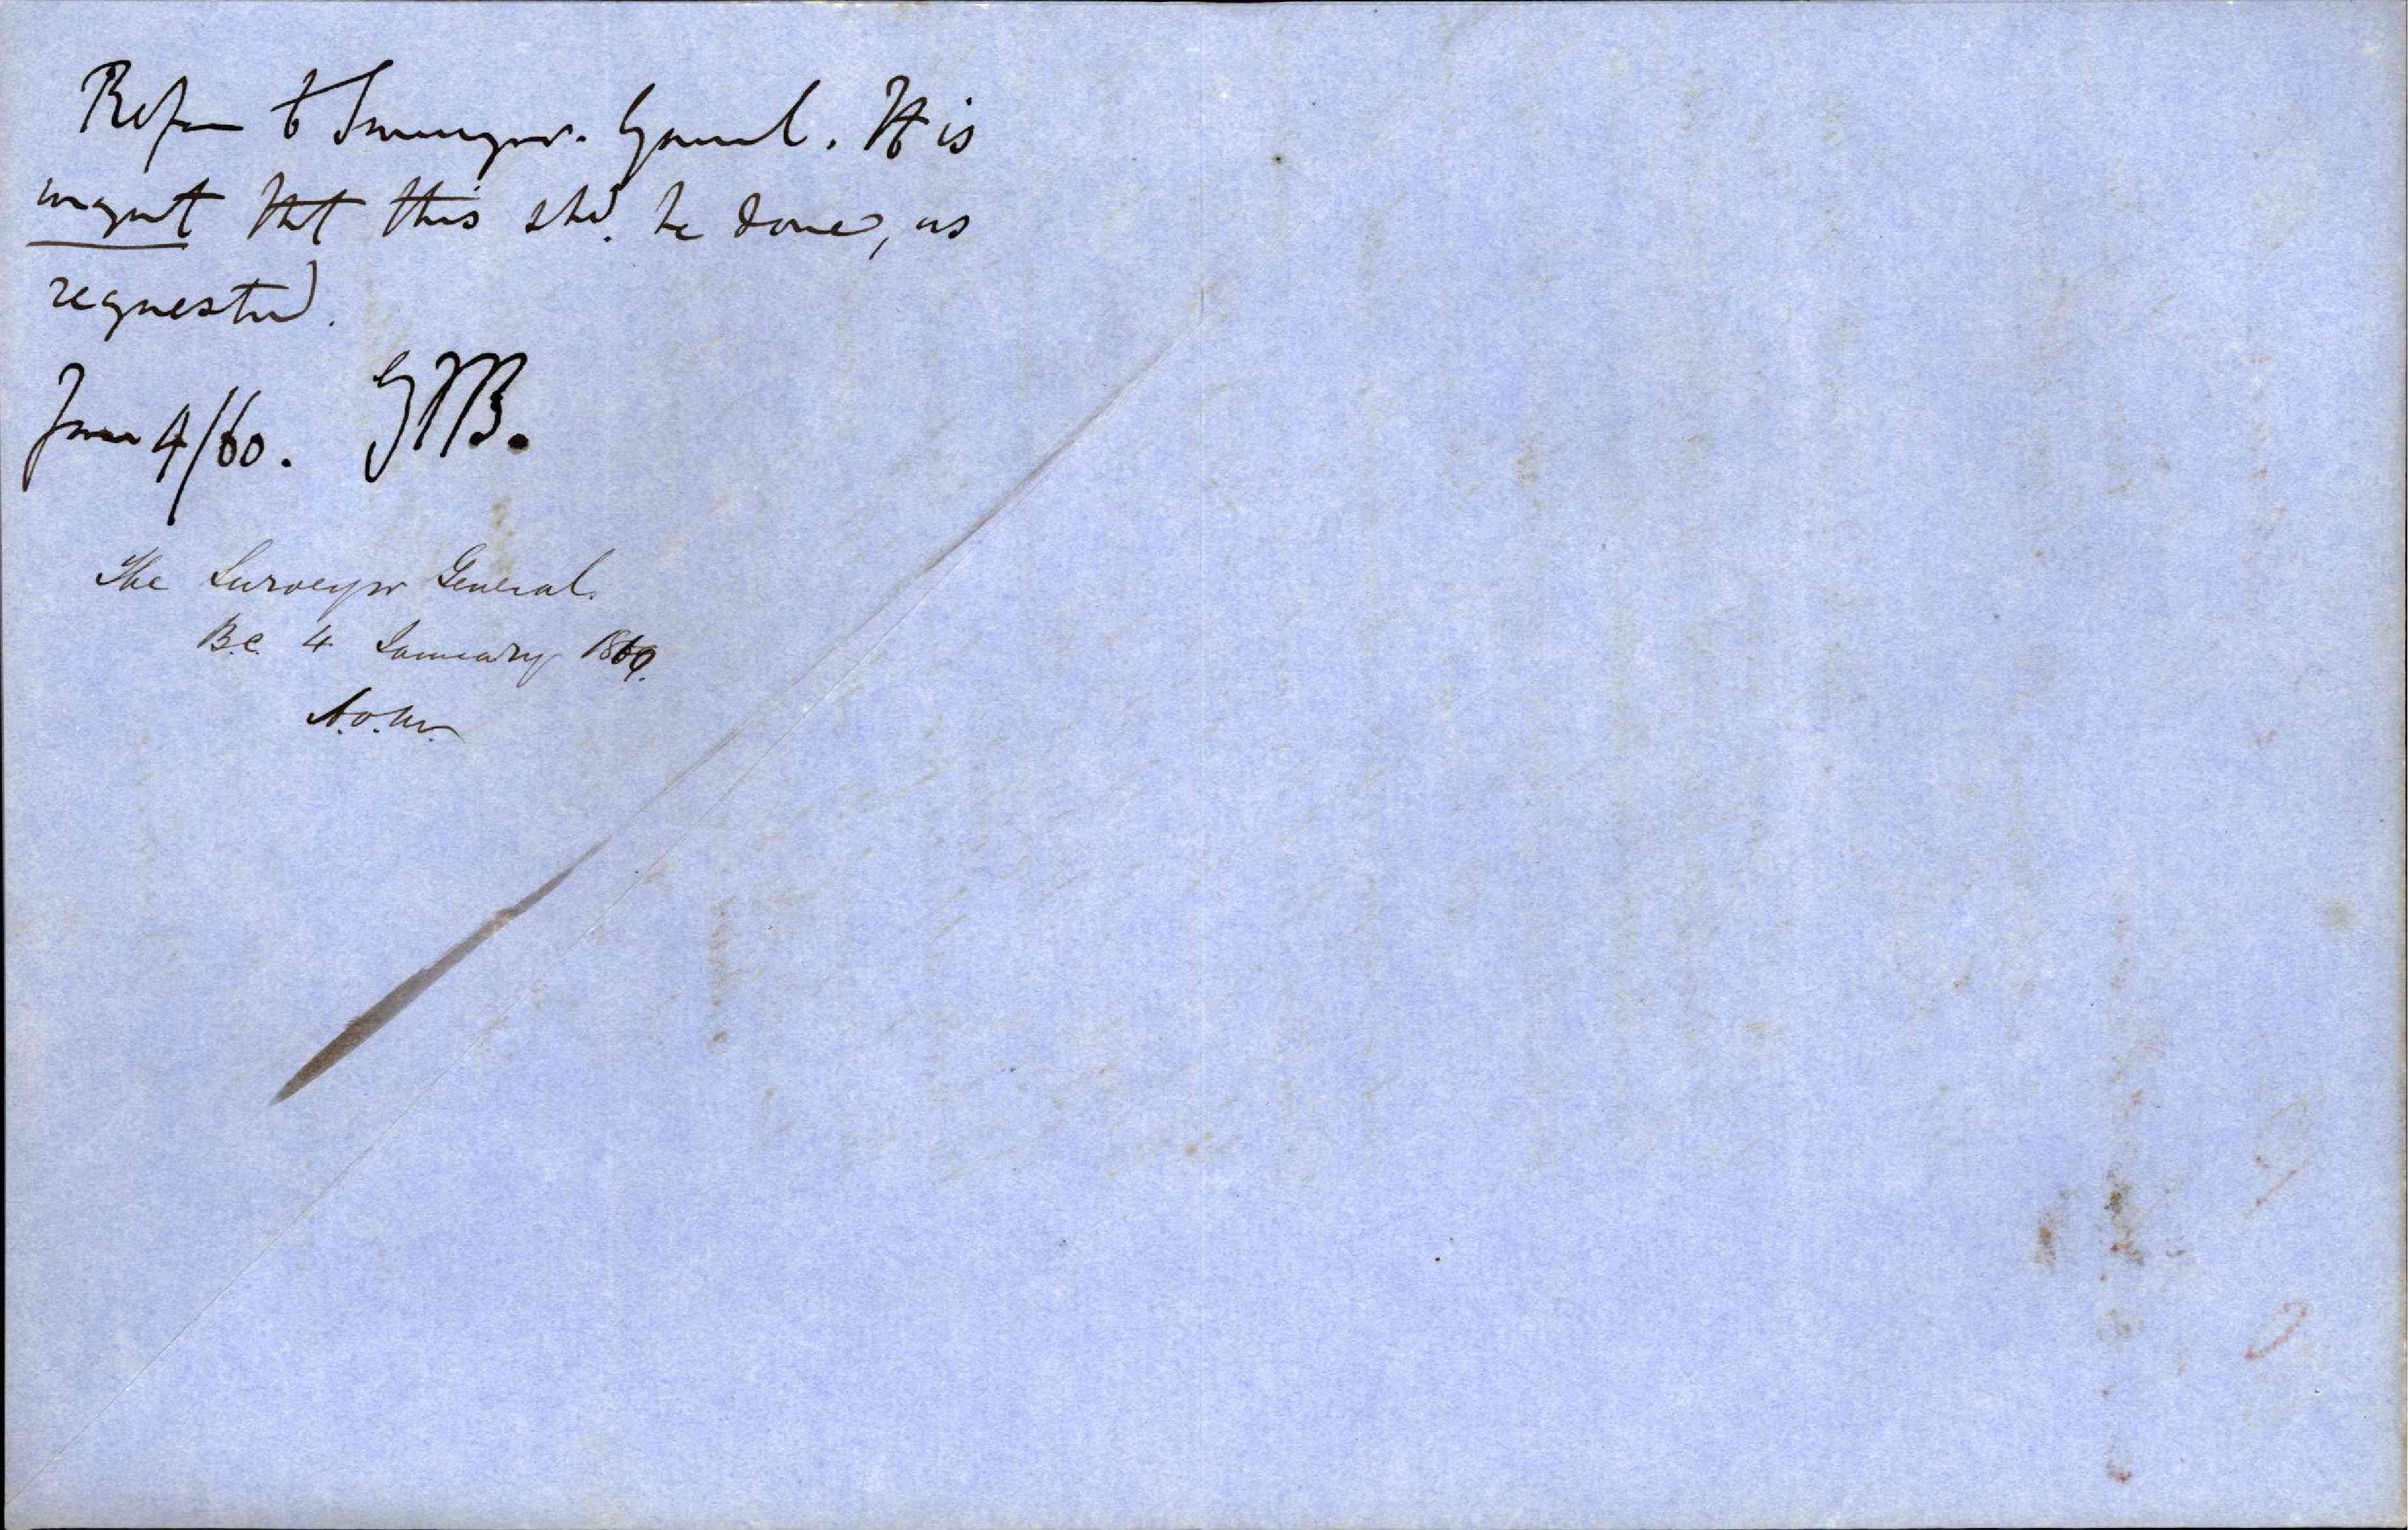 Refer to Surveyor General. It is
urgent that this shd. be done, as
requested.
Jan 4/60. GFB.
The Surveyor General.
B.C. 4 January 1860.
A.O.M.